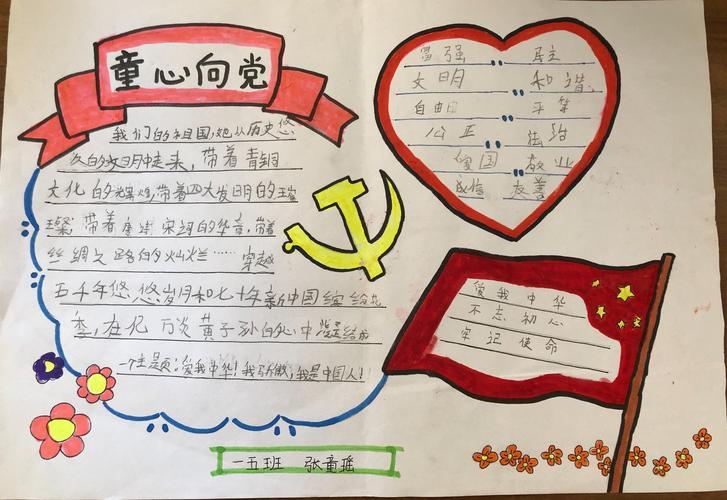 童心向党
我们的祖国,她从历史悠
久的文明中走来,带着青铜
文化的辉煌,带着四大发明的璀
璨,带着唐诗宋词的华章,带着
丝绸之路的灿烂……穿越
五千年悠悠岁月和七十年新中国缤纷花
季,在亿万炎黄子孙的心中凝结成
一个主题:爱我中华!我骄傲,我是中国人!
富强、民主
文明、和谐、
自由 平等
公正、法治
爱国 敬业
诚信、友善
爱我中华
不忘初心
牢记使命
一五班 张童瑶